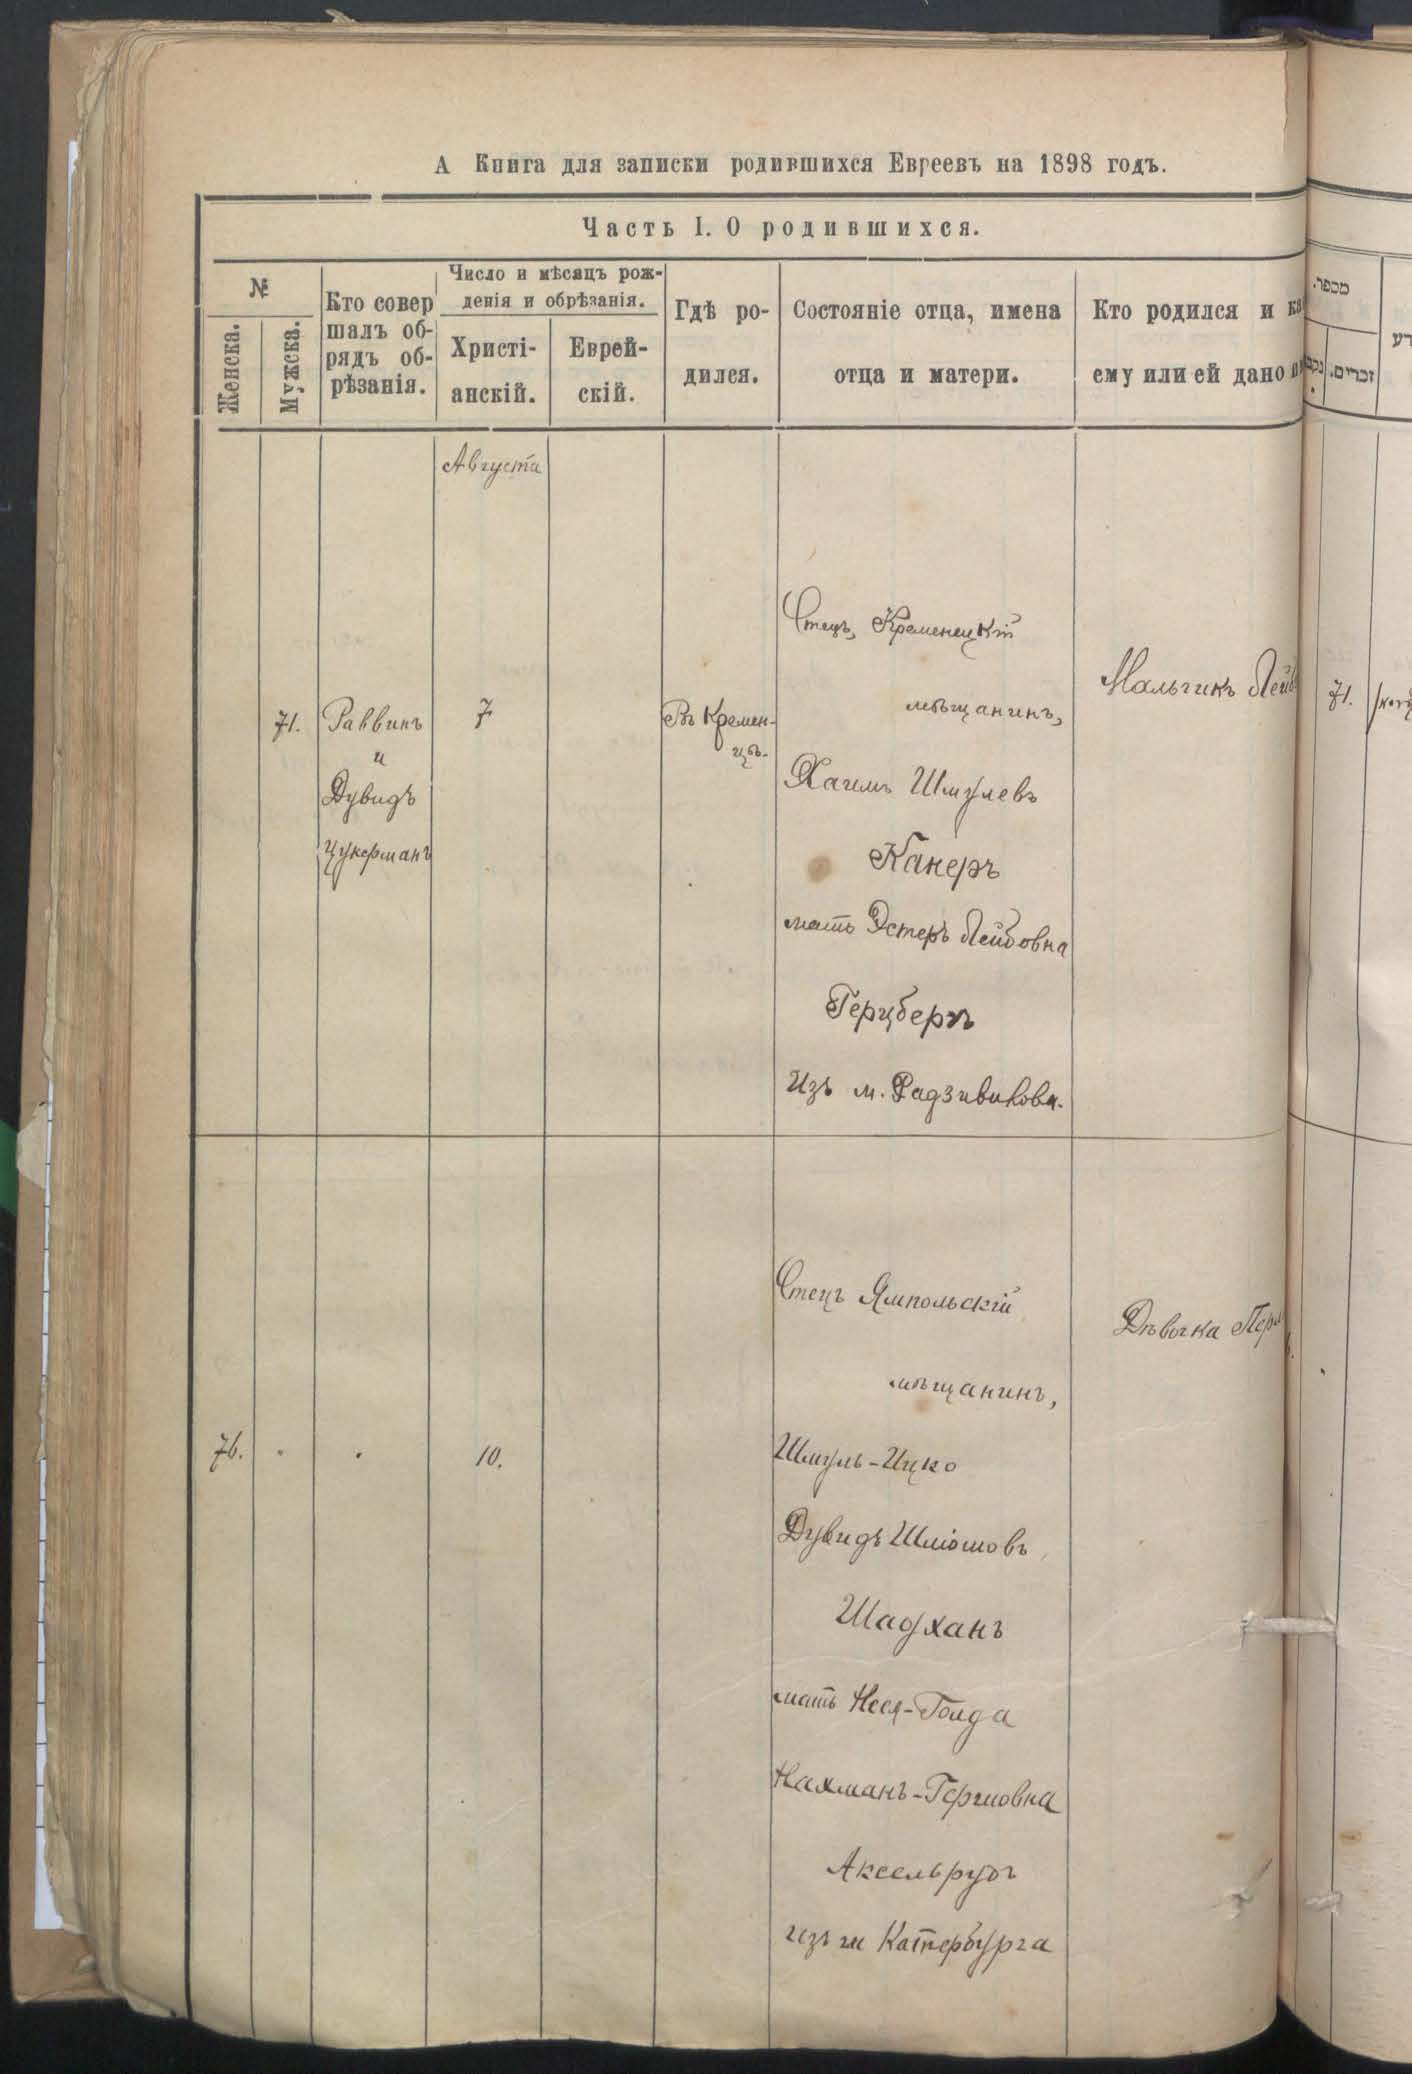 А Книга для записки родившихся Евреевъ на 1898 годъ.
Часть I. О родившихся.
№
Женска.
Мужска.
Кто совер
шалъ об-
рядъ об-
рѣзанія.
Число и мѣсяцъ рож-
денія и обрѣзанія.
Христі-
анскій.
Еврей-
скій.
Гдѣ ро-
дился.
Состояніе отца, имена
отца и матери.
Кто родился и ка
ему или ей дано
מספר.
זכרים.
Августа
71.
Раввинъ
и
Дувидъ
Цукерманъ
7
Въ Кремен-
цѣ.
Отецъ, Кременецкій
мѣщанинъ,
Хаимъ Шмулевъ
Канеръ
мать Эстеръ Лейбовна
Герцбергъ
Изъ м. Радзивилова.
Мальчикъ Лейб
71.
76.
10.
Отецъ Ямпольскій
мѣщанинъ,
Шмуль-Ицко
Дувидъ Шліомовъ
Шадханъ
мать Неся-Голда
Нахманъ-Гершовна
Аксельрудъ
изъ м Катербурга
Дѣвочка Перл